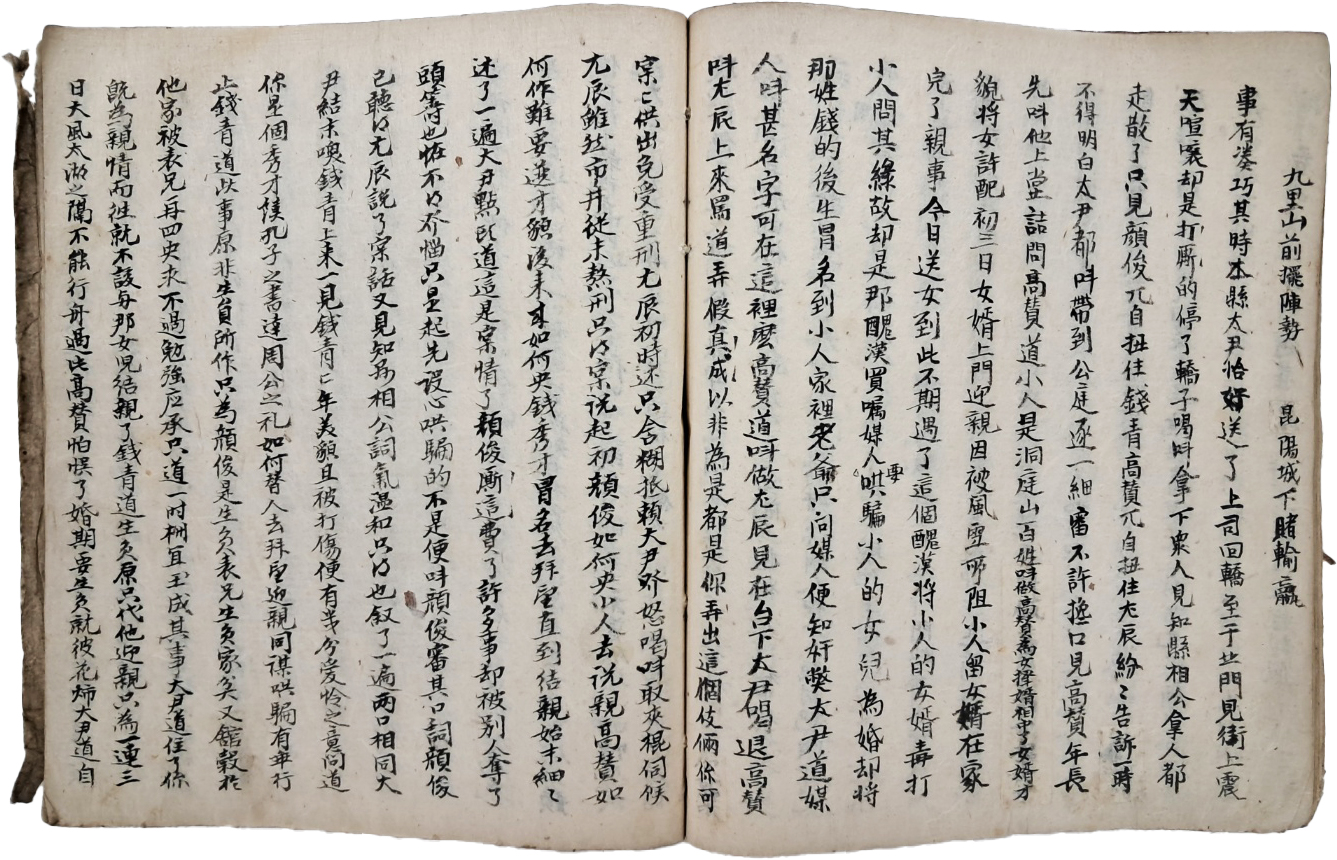 九里山前擺陣勢　昆陽城下賭輸贏
事有湊巧其時本縣大尹恰好送了上司回轎至于北門見街上震
天喧嚷却是打厮的停了轎子喝呌拿下衆人見知縣相公拿人都
走散了只見顔俊兀自扭住錢青高賛兀自扭住尤辰紛〻告訴一時
不得明白太尹都呌帶到公庭逐一細審不許攙口見高賛年長
先呌他上堂詰問高賛道小人是洞庭山百姓呌做高賛為女擇婿相中了女婿才
貌將女許配初三日女婿上門迎親因被風雪所阻小人留女婿在家
完了親事今日送女到此不期遇了這個醜漢將小人的女婿毒打
小人問其緣故却是那醜漢買嘱媒人要哄騙小人的女兒為婚却將
那姓錢的後生冒名到小人家裡老爺只问媒人便知奸獘大尹道媒
人呌甚名字可在這裡麽高賛道呌做尤辰見在台下太尹喝退高賛
呌尤辰上來罵道弄假真成以非為是都是你弄出這個伎倆你可
实〻供出免受重刑尤辰初時还只含糊抵賴大尹發怒喝呌取夾棍伺候
尤辰雖然市井從未熬刑只得实說起初顔俊如何央小人去說親高賛如
何作難要選才貌後來如何央錢秀才冒名去拜望直到结親始末細〻
述了一遍大尹點頭道這是实情了顔俊厮這費了許多事却被別人奪了
頭籌也怪不得発惱只是起先設心哄騙的不是便呌顔俊審其口詞顔俊
已聽得尤辰說了实話又見知縣相公詞氣溫和只得也叙了一遍两口相同大
尹結末喚錢青上来一見錢青青年美貌且被打傷便有幾分爱怜之意问道
你是個秀才讀孔子之書達周公之礼如何替人去拜望迎親同謀哄騙有乖行
止錢青道此事原非生員所作只為顔俊是生員表兄生員家貧又舘穀於
他家被表兄再四央求不過勉強应承只道一时權宜玉成其事大尹道住了你
既為親情而徃就不該与那女児结親了錢青道生員原只代他迎親只為一連三
日大風太湖之隔不能行舟過此高賛怕悞了婚期要生員就彼花烛大尹道自